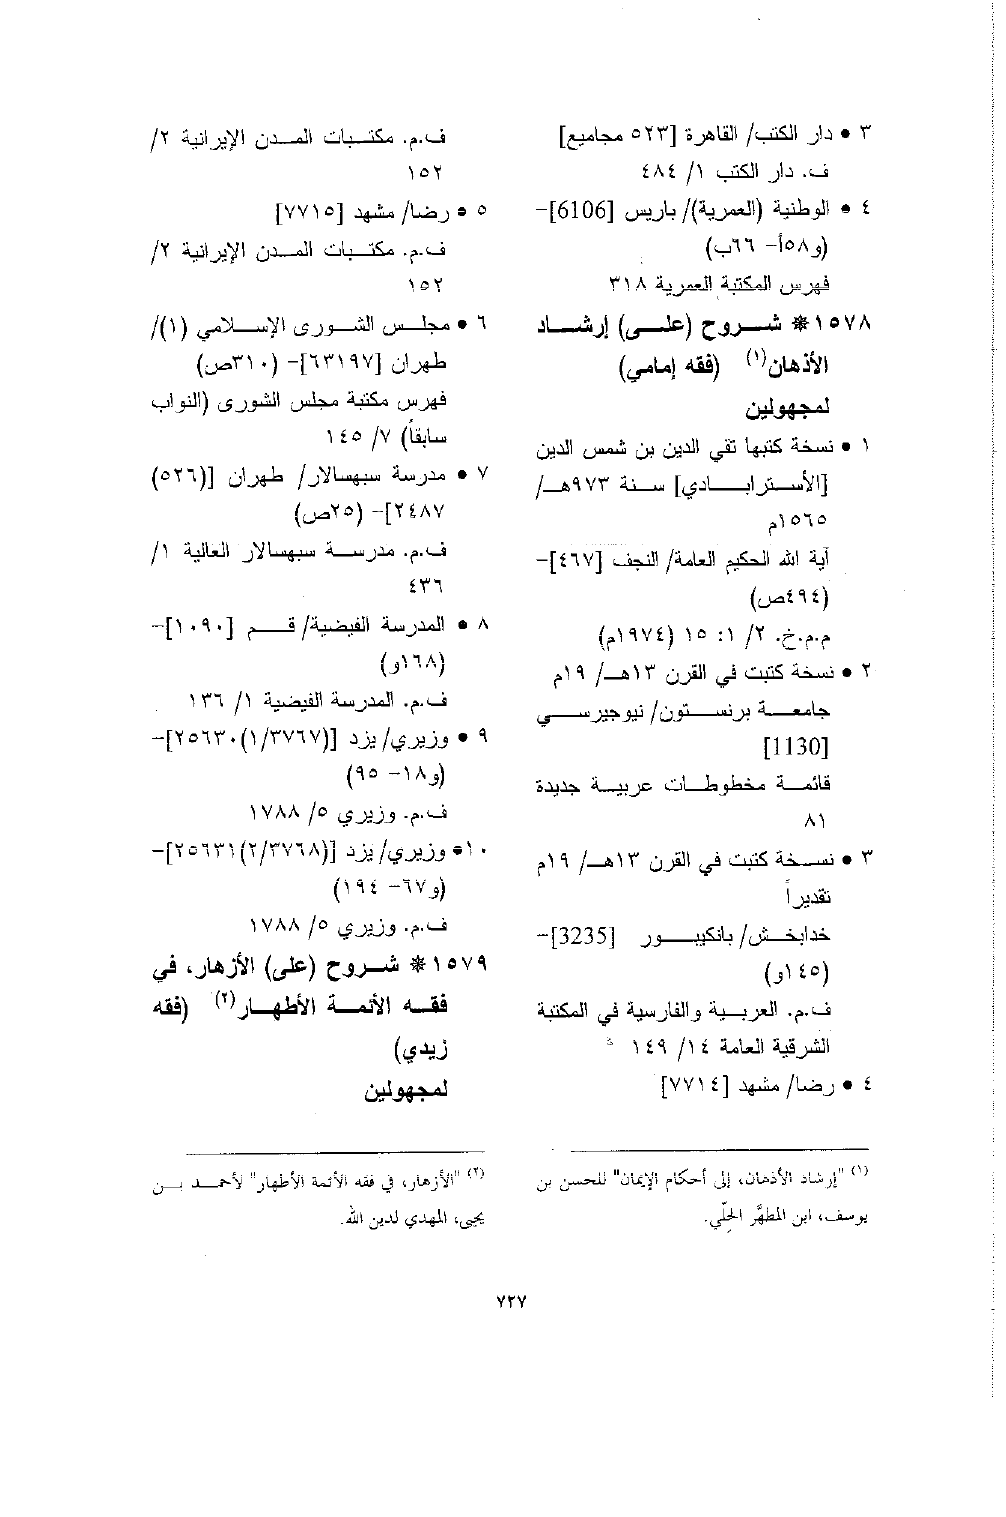 ٣ • دار الكتب/ القاهرة [٥٢٣ مجاميع]
ف. دار الكتب ١/ ٤٨٤
٤ • الوطنية (العمرية)/ باريس [6106]-
(و٥٨أ- ٦٦ب)
فهرس المكتبة العمرية ٣١٨
١٥٧٨* شروح (على) إرشاد
الأذهان(١) (فقه إمامي)
لمجهولين
١ • نسخة كتبها تقي الدين بن شمس الدين
[الأسترابادي] سنة ٩٧٣هـ/
١٥٦٥م
آية الله الحكيم العامة/ النجف [٤٦٧]-
(٤٩٤ص)
م.م.خ. ٢/ ١: ١٥ (١٩٧٤م)
٢ • نسخة كتبت في القرن ١٣هـ/ ١٩م
جامعة برنستون/ نيوجيرسي
[1130]
قائمة مخطوطات عربية جديدة
٨١
٣ • نسخة كتبت في القرن ١٣هـ/ ١٩م
تقديراً
خدابخش/ بانكيبور [3235]-
(١٤٥و)
ف.م. العربية والفارسية في المكتبة
الشرقية العامة ١٤/ ١٤٩
٤ • رضا/ مشهد [٧٧١٤]
ف.م. مكتبات المدن الإيرانية ٢/
١٥٢
٥ • رضا/ مشهد [٧٧١٥]
ف.م. مكتبات المدن الإيرانية ٢/
١٥٢
٦ • مجلس الشورى الإسلامي (١)/
طهران [٦٣١٩٧]- (٣١٠ص)
فهرس مكتبة مجلس الشورى (النواب
سابقاً) ٧/ ١٤٥
٧ • مدرسة سبهسالار/ طهران [(٥٢٦)
٢٤٨٧]- (٢٥ص)
ف.م. مدرسة سبهسالار العالية ١/
٤٣٦
٨ • المدرسة الفيضية/ قم [١٠٩٠]-
(١٦٨و)
ف.م. المدرسة الفيضية ١/ ١٣٦
٩ • وزيري/ يزد [(١/٣٧٦٧)٢٥٦٣٠]-
(و١٨- ٩٥)
ف.م. وزيري ٥/ ١٧٨٨
١٠• وزيري/ يزد [(٢/٣٧٦٨)٢٥٦٣١]-
(و٦٧- ١٩٤)
ف.م. وزيري ٥/ ١٧٨٨
١٥٧٩* شروح (على) الأزهار، في
فقه الأئمة الأطهار(٢) (فقه
زيدي)
لمجهولين
(١) "إرشاد الأذهان، إلى أحكام الإيمان" للحسن بن
يوسف، ابن المطهَّر الحِلّي.
(٢) "الأزهار، في فقه الأئمة الأطهار" لأحمد بن
يحيى، المهدي لدين الله.
٧٢٧